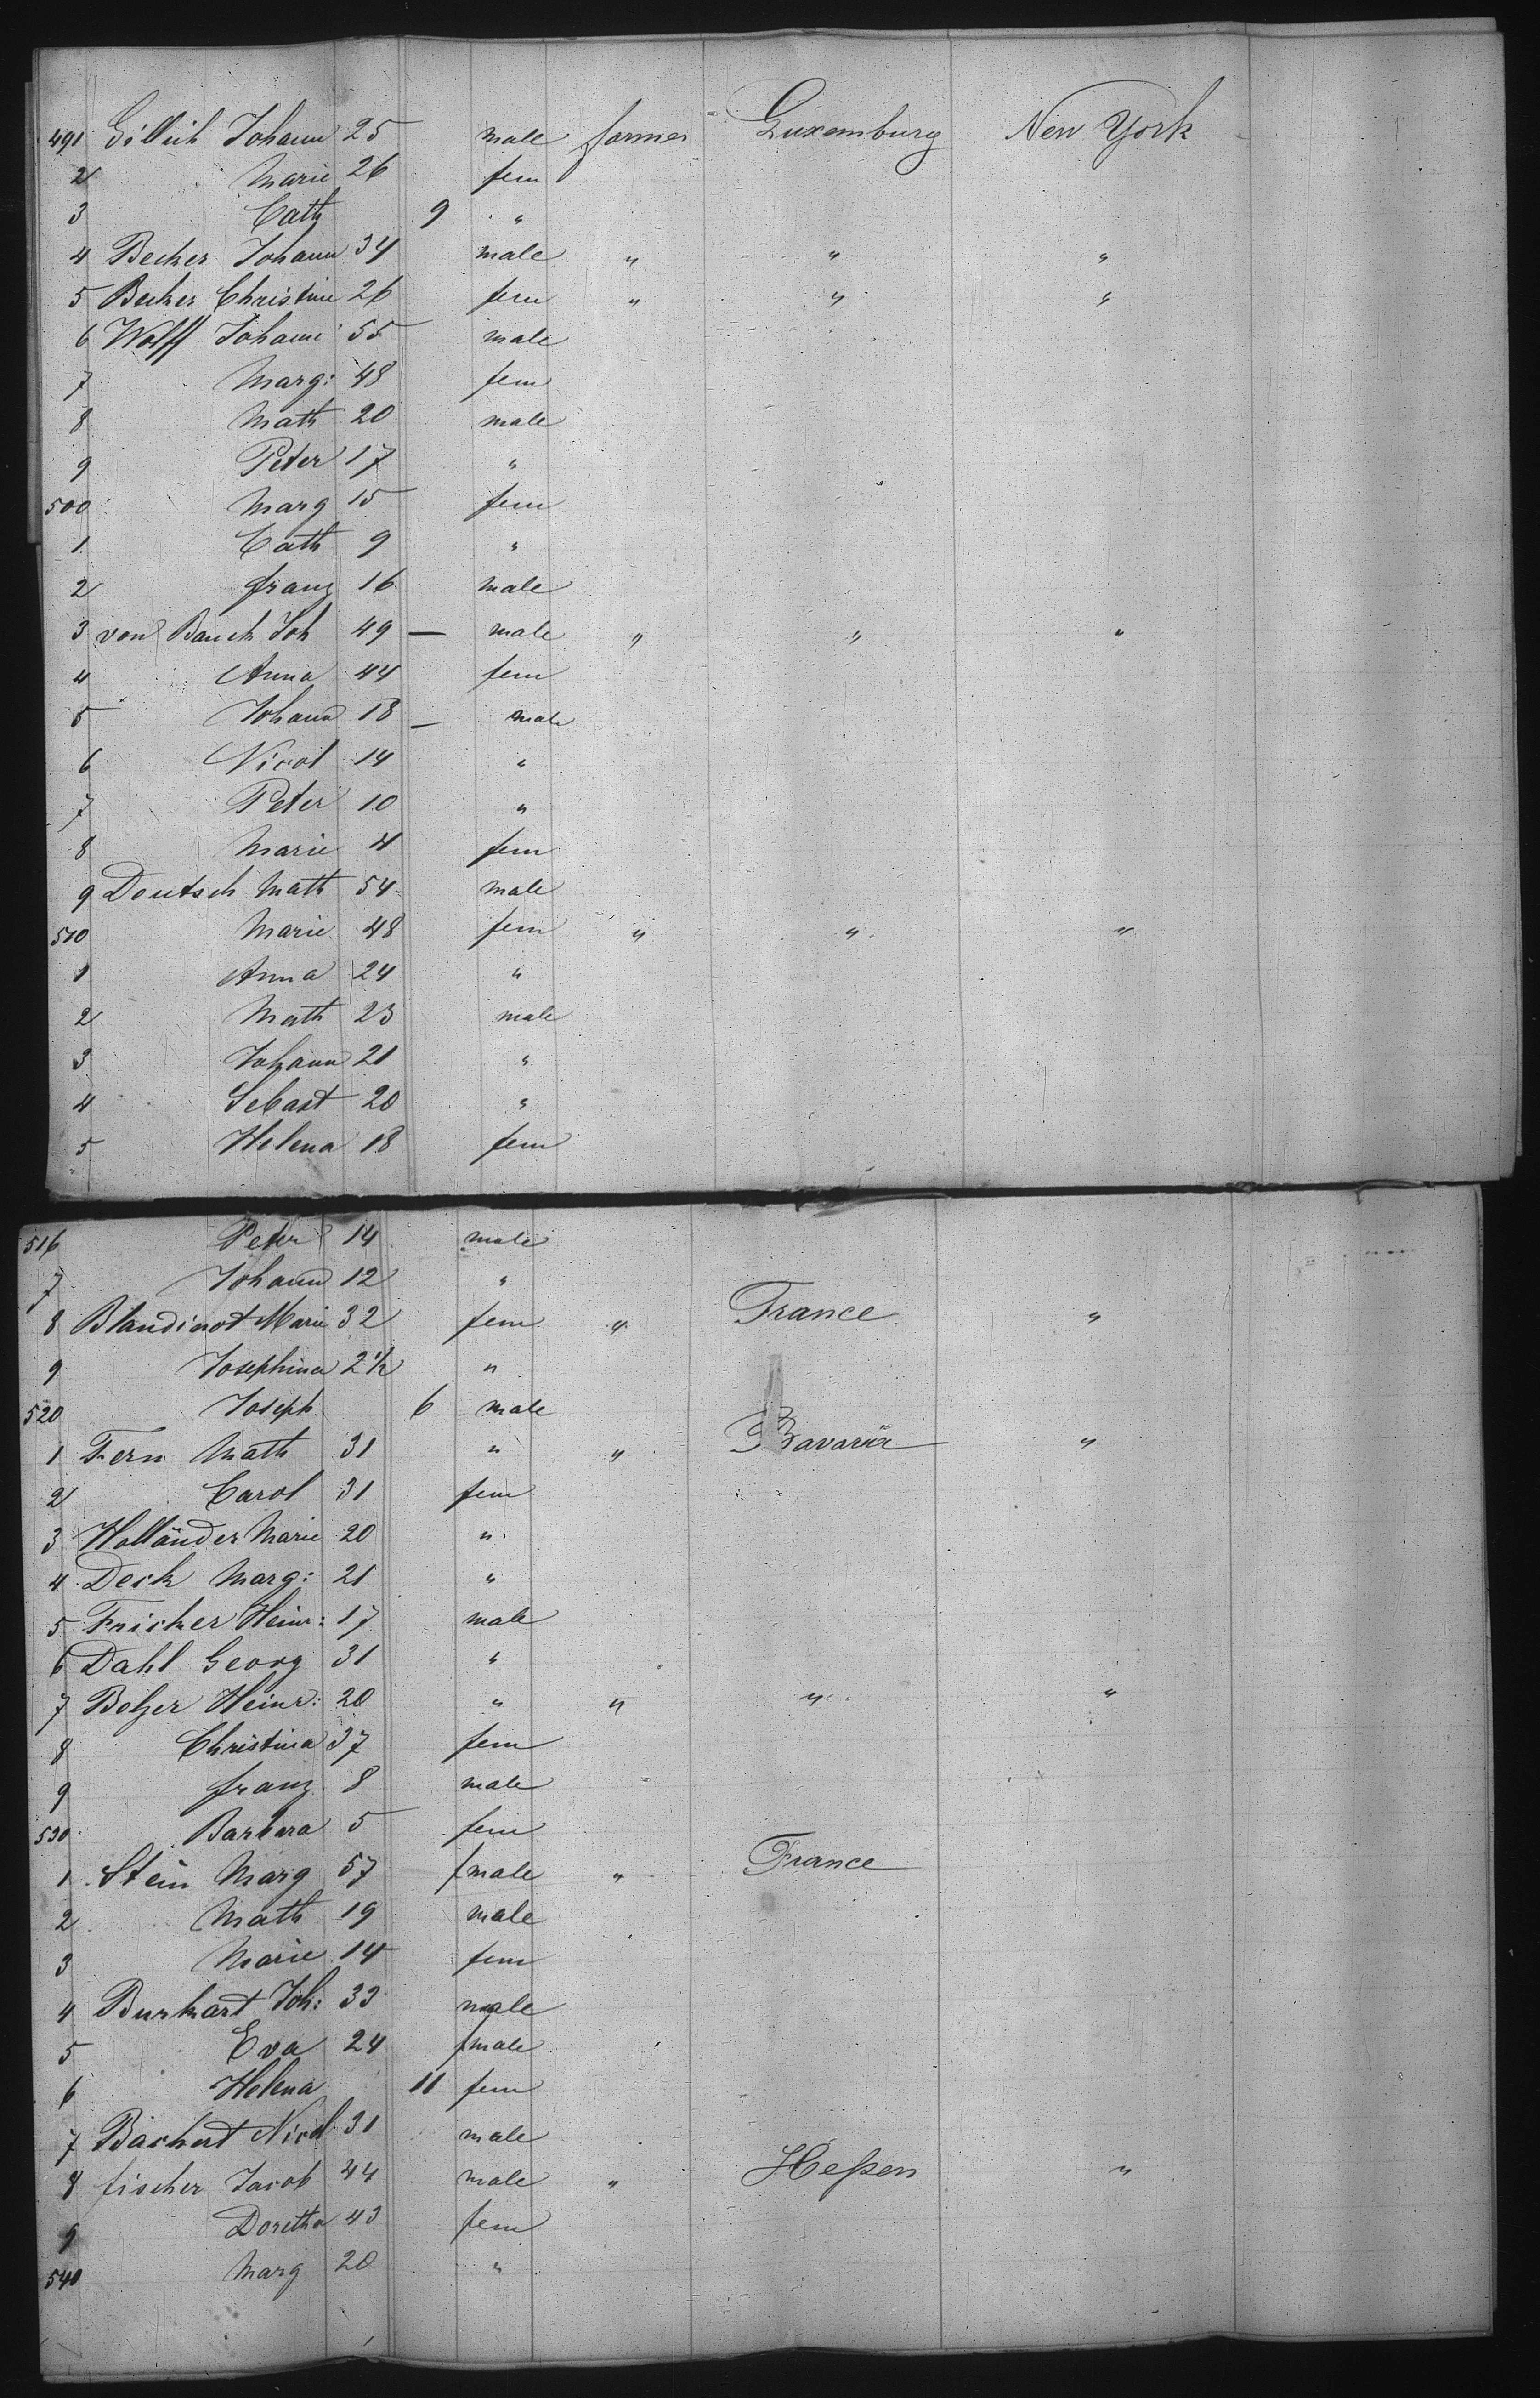 491 Gillich Johann 25 male farmer Luxemburg New York
2 Marie 26 fem
3 Cath 9 "
4 Becker Johann 34 male " " "
5 Becker Christine 26 fem " " "
6 Wolff Johann 55 male
7 Marg: 48 fem
8 Math 20 male
9 Peter 17 "
500 Marg 15 fem
1 Cath 9 "
2 Franz 16 male
3 von Bauch Joh 49 — male " " "
4 Anna 44 fem
5 Johann 18 — male
6 Nicol 14 "
7 Peter 10 "
8 Marie 4 fem
9 Deutsch Math 54 male
510 Marie 48 fem " " "
1 Anna 24 "
2 Math 23 male
3 Johann 21 "
4 Sebast 20 "
5 Helena 18 fem
516 Peter 14 male
7 Johann 12 "
8 Blandinot Marie 32 fem " France "
9 Josephine 2 1/2 "
520 Joseph 6 male
1 Fern Math 31 " " Bavaria "
2 Carol 31 fem
3 Holländer Marie 20 "
4 Deck Marg: 21 "
5 Fricker Heinr: 17 male
6 Dahl Georg 31 "
7 Bolzer Heinr: 20 " " " "
8 Christina 37 fem
9 Franz 8 male
530 Barbara 5 fem
1 Stein Marg 57 fmale " France
2 Math 19 male
3 Marie 14 fem
4 Burkart Joh: 33 male
5 Eva 24 fmale
6 Helena 11 fem
7 Bachert Nicol 31 male
8 fischer Jacob 44 male " Heßen "
9 Doretha 43 fem
540 Marg 20 "